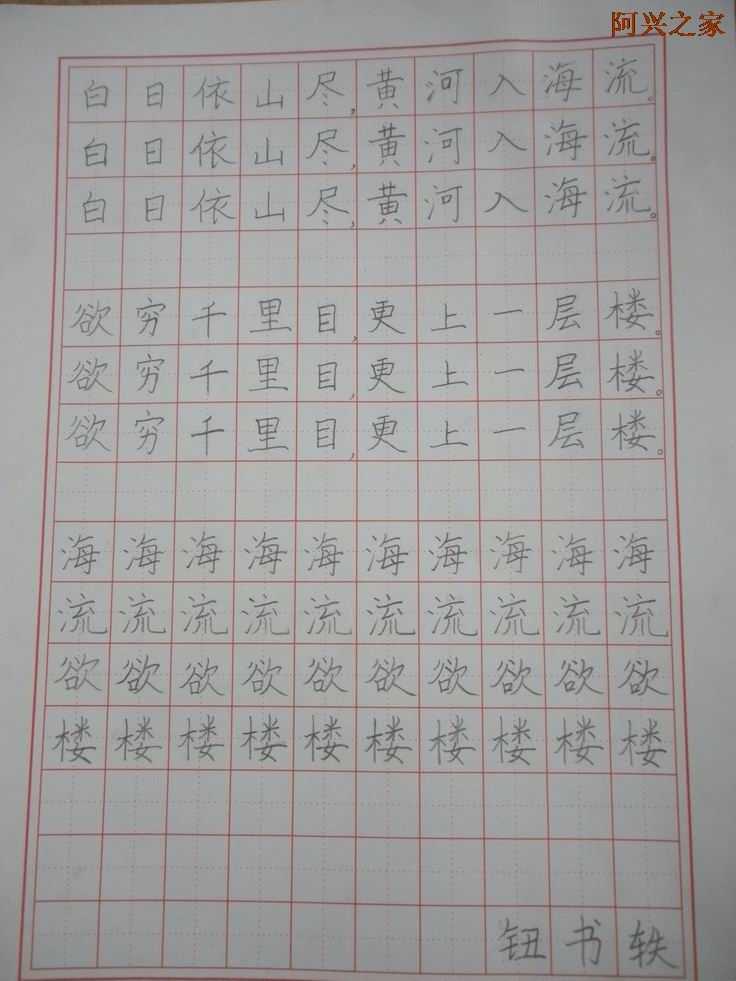 阿兴之家
白日依山尽,黄河入海流。
白日依山尽,黄河入海流。
白日依山尽,黄河入海流。
欲穷千里目,更上一层楼。
欲穷千里目,更上一层楼。
欲穷千里目,更上一层楼。
海海海海海海海海海海
流流流流流流流流流流
欲欲欲欲欲欲欲欲欲欲
楼楼楼楼楼楼楼楼楼楼
钮书轶